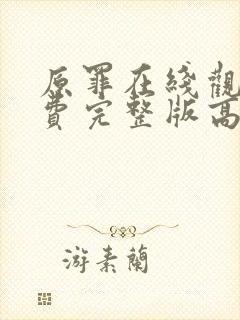 原罪在綫觀
費完整版高
游素蘭